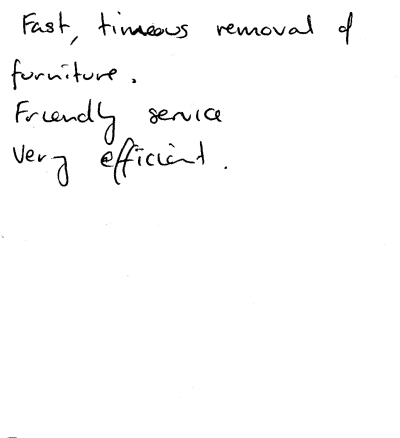 Fast, timeous removal of
furniture.
Friendly service
Very efficient.